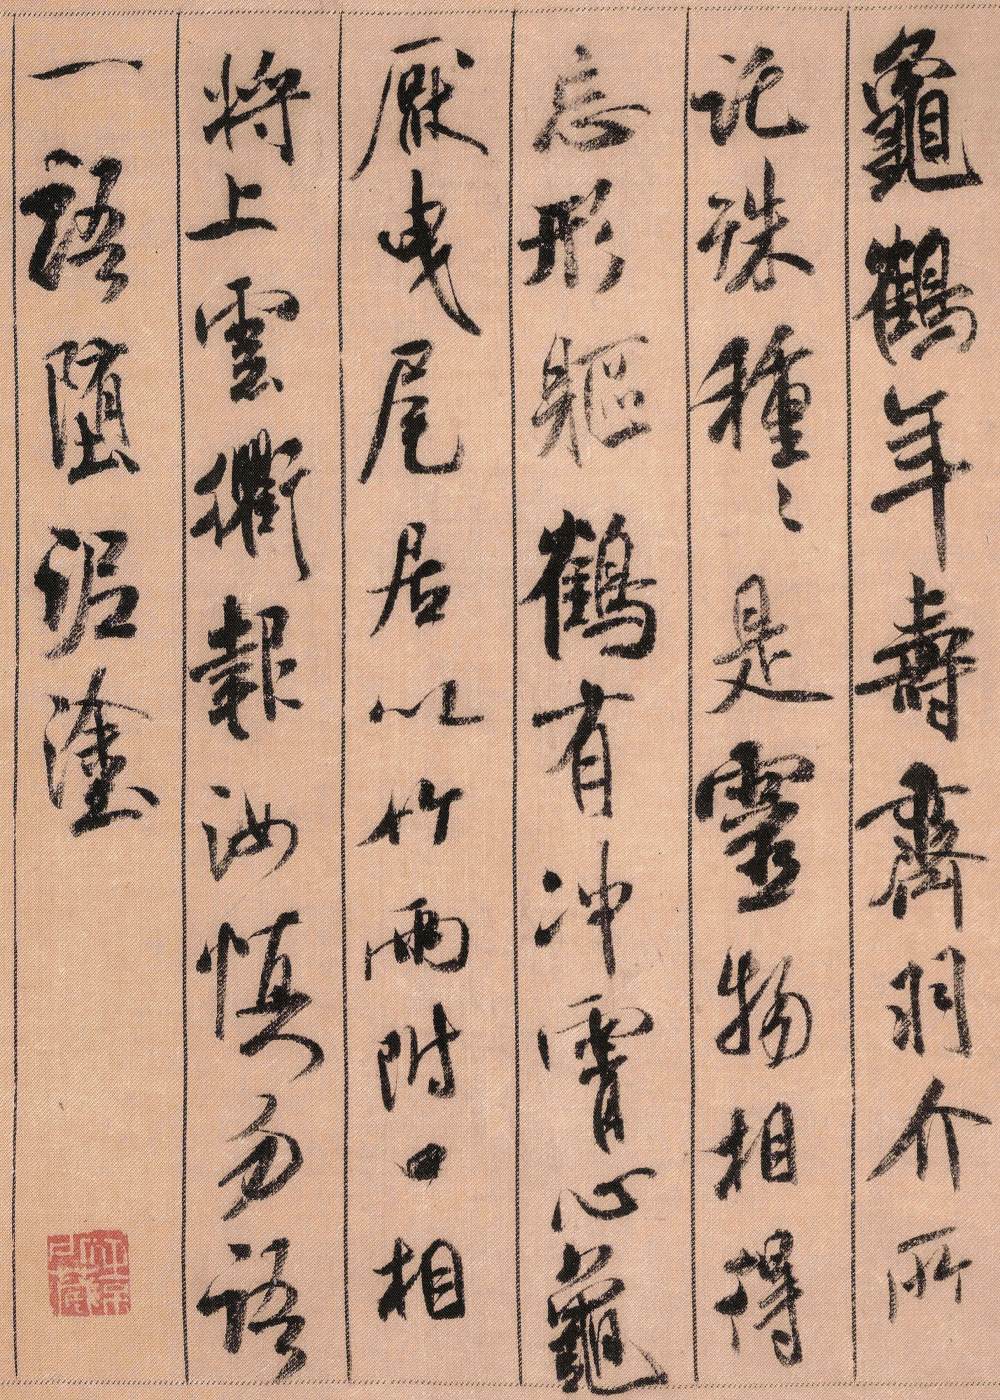 龜鶴年壽齊羽介所
託殊種種是靈物相得
忘形軀鶴有沖霄心龜
厭曳尾居以竹兩附口相
將上雲衢報汝慎勿語
一語墮泥塗